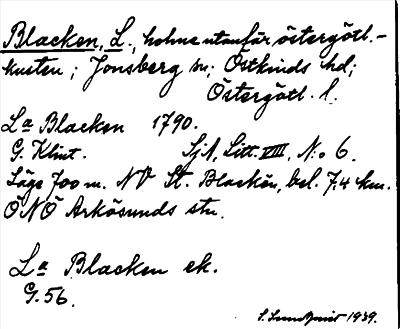 Blacken, L., holme utanför östergötl.-
kusten; Jonsberg sn; Östkinds hd;
Östergötl. l.
La Blacken 1790.
G. Klint. SjA, Litt. VIII, N:o 6.
Läge 700 m. NV St. Blackön, bel. 7.4 km.
ÖNÖ Arkösunds stn.
La Blacken ek.
G. 56.
S. Sundqvist 1939.